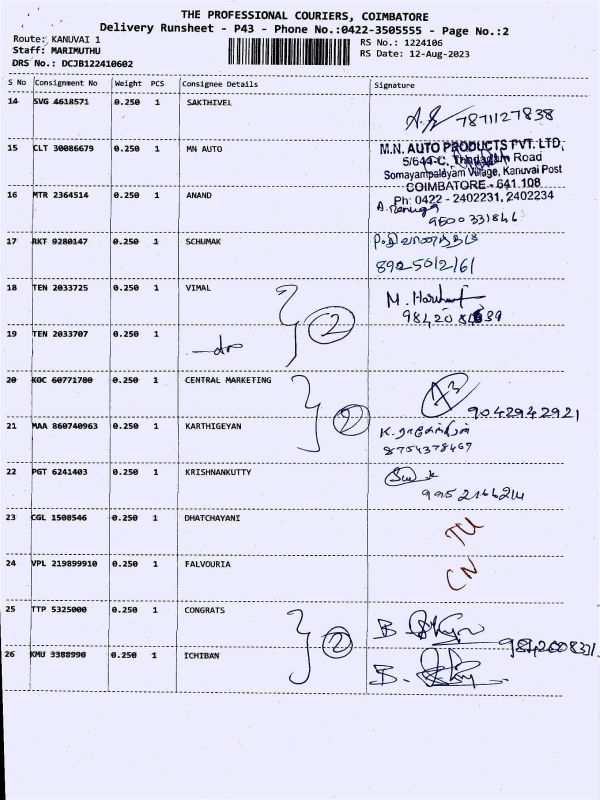 THE PROFESSIONAL COURIERS, COIMBATORE
Delivery Runsheet - P43 - Phone No.:0422-3505555 - Page No.:2
Route: KANUVAI 1
RS No.: 1224106
Staff: MARIMUTHU
RS Date: 12-Aug-2023
DRS No.: DCJB122410602
S No Consignment No Weight PCS Consignee Details Signature
14 SVG 4618571 0.250 1 SAKTHIVEL
7871127838
15 CLT 30086679 0.250 1 MN AUTO
M.N. AUTO PRODUCTS PVT. LTD,
5/644-C, Thadagam Road
Somayampalayam Village, Kanuvai Post
COIMBATORE - 641 108
Ph: 0422 - 2402231, 2402234
16 MTR 2364514 0.250 1 ANAND
A. Renuga
17 RKT 9280147 0.250 1 SCHUMAK
8925012161
18 TEN 2033725 0.250 1 VIMAL
2
19 TEN 2033707 0.250 1
do
20 KOC 60771780 0.250 1 CENTRAL MARKETING
9042942921
2
21 MAA 860740963 0.250 1 KARTHIGEYAN
8754378467
22 PGT 6241403 0.250 1 KRISHNANKUTTY
9952166214
23 CGL 1508546 0.250 1 DHATCHAYANI
24 VPL 219899910 0.250 1 FALVOURIA
CN
25 TTP 5325000 0.250 1 CONGRATS
2
26 KMU 3388990 0.250 1 ICHIBAN